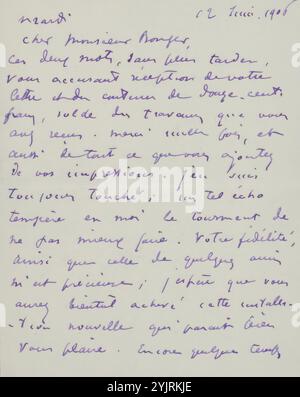 mardi 12 Juin. 1906
Cher Monsieur Bonger,
ces deux mots, sans plus tarder,
vous accusant réception de votre
lettre et du contenu de douze-cents
francs, solde des travaux que vous
avez reçus. merci mille fois, et
aussi de tout ce que vous ajoutez
de vos impressions. J'en suis
toujours touché; un tel écho
tempère en moi le tourment de
ne pas mieux faire. Votre fidélité,
ainsi que celle de quelques amis
m'est précieuse; j'espère que vous
aurez bientôt achevé cette installa-
-tion nouvelle qui parait bien
vous plaire. Encore quelque temps
alamy
Image ID: 2YJRKJE
www.alamy.com